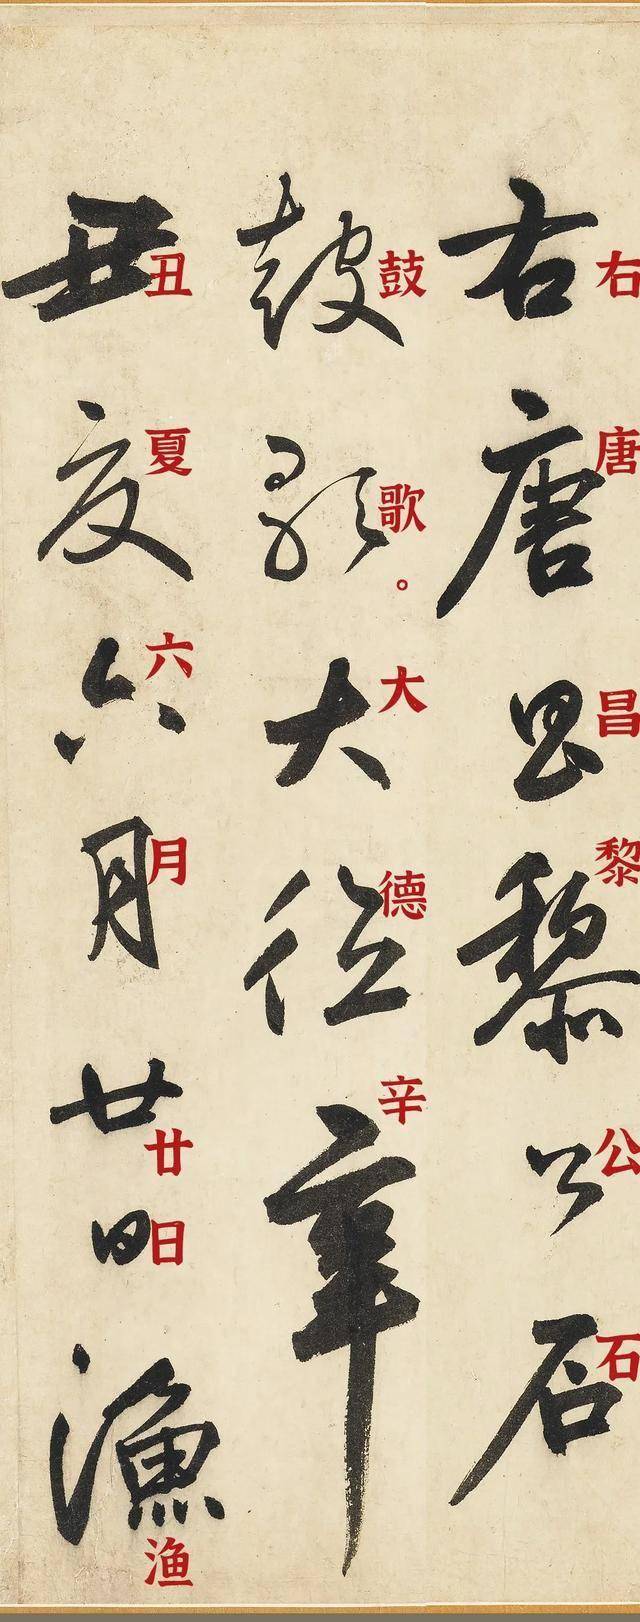 右唐昌黎公石
鼓歌。大德辛
丑夏六月廿日渔